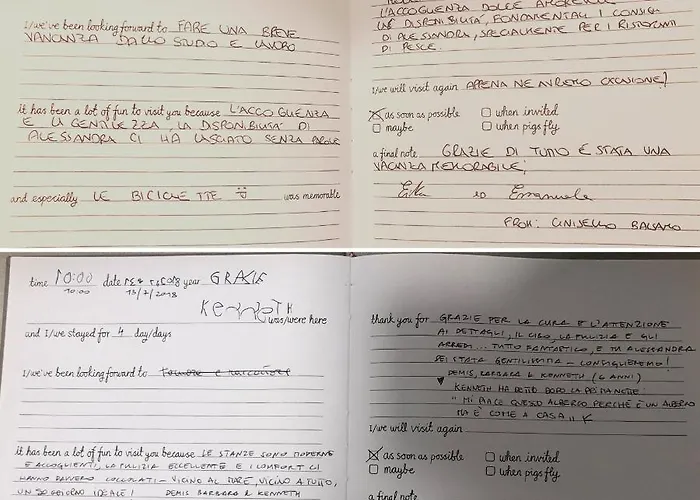 I/we've been looking forward to FARE UNA BREVE
VANCANZA DALLO STUDIO E LAVORO
it has been a lot of fun to visit you because L'ACCOGLIENZA
E LA GENTILEZZA, LA DISPONIBILITA' DI
ALESSANDRA CI HA LASCIATO SENZA PAROLE
and especially LE BICICLETTE :) was memorable
L'ACCOGLIENZA DOLCE AMOREVOLE
LA DISPONIBILITÀ, FONDAMENTALI I CONSIGLI
DI ALESSANDRA, SPECIALMENTE PER I RISTORANTI
DI PESCE.
I/we will visit again APPENA NE AVREMO OCCASIONE!
as soon as possible
when invited
maybe
when pigs fly
a final note GRAZIE DI TUTTO È STATA UNA
VACANZA MEMORABILE,
Emanuele
FROM: CINISELLO BALSAMO
time 10:00 date year GRAZIE
10:00 13/7/2018
KENNETH
was/were here
and I/we stayed for 4 day/days
I/we've been looking forward to
it has been a lot of fun to visit you because LE STANZE SONO MODERNE
E ACCOGLIENTI, LA PULIZIA ECCELLENTE E I COMFORT CI
HANNO DAVVERO COCCOLATI - VICINO AL MARE, VICINO A TUTTO,
UN SOGGIORNO IDEALE! DEMIS BARBARA & KENNETH
thank you for GRAZIE PER LA CURA E L'ATTENZIONE
AI DETTAGLI, IL CIBO, LA PULIZIA E GLI
ARREDI... TUTTO FANTASTICO, E TU ALESSANDRA
SEI STATA GENTILISSIMA - CONSIGLIEREMO!
DEMIS, BARBARA & KENNETH (6 ANNI)
♥ KENNETH HA DETTO DOPO LA PRIMA NOTTE:
"MI PIACE QUESTO ALBERGO PERCHÉ È UN ALBERGO
MA È COME A CASA" K
I/we will visit again
as soon as possible
when invited
maybe
when pigs fly
a final note